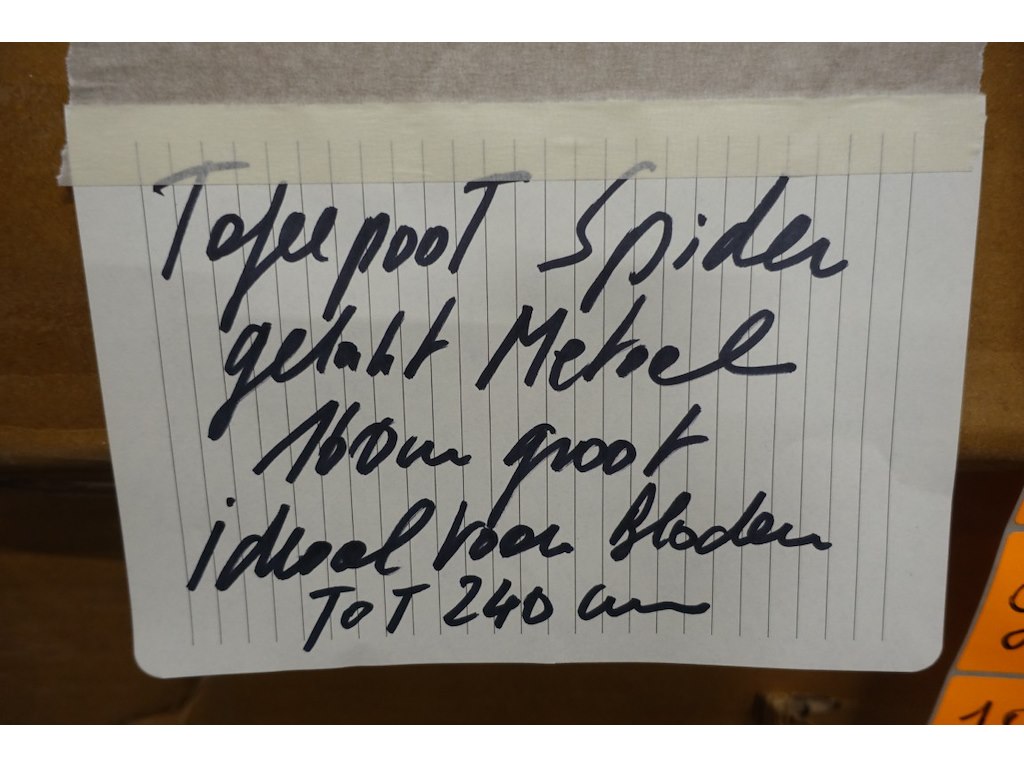 Tafelpoot Spider
gelakt Metael
160cm groot
ideaal voor Bladen
ToT 240 cm